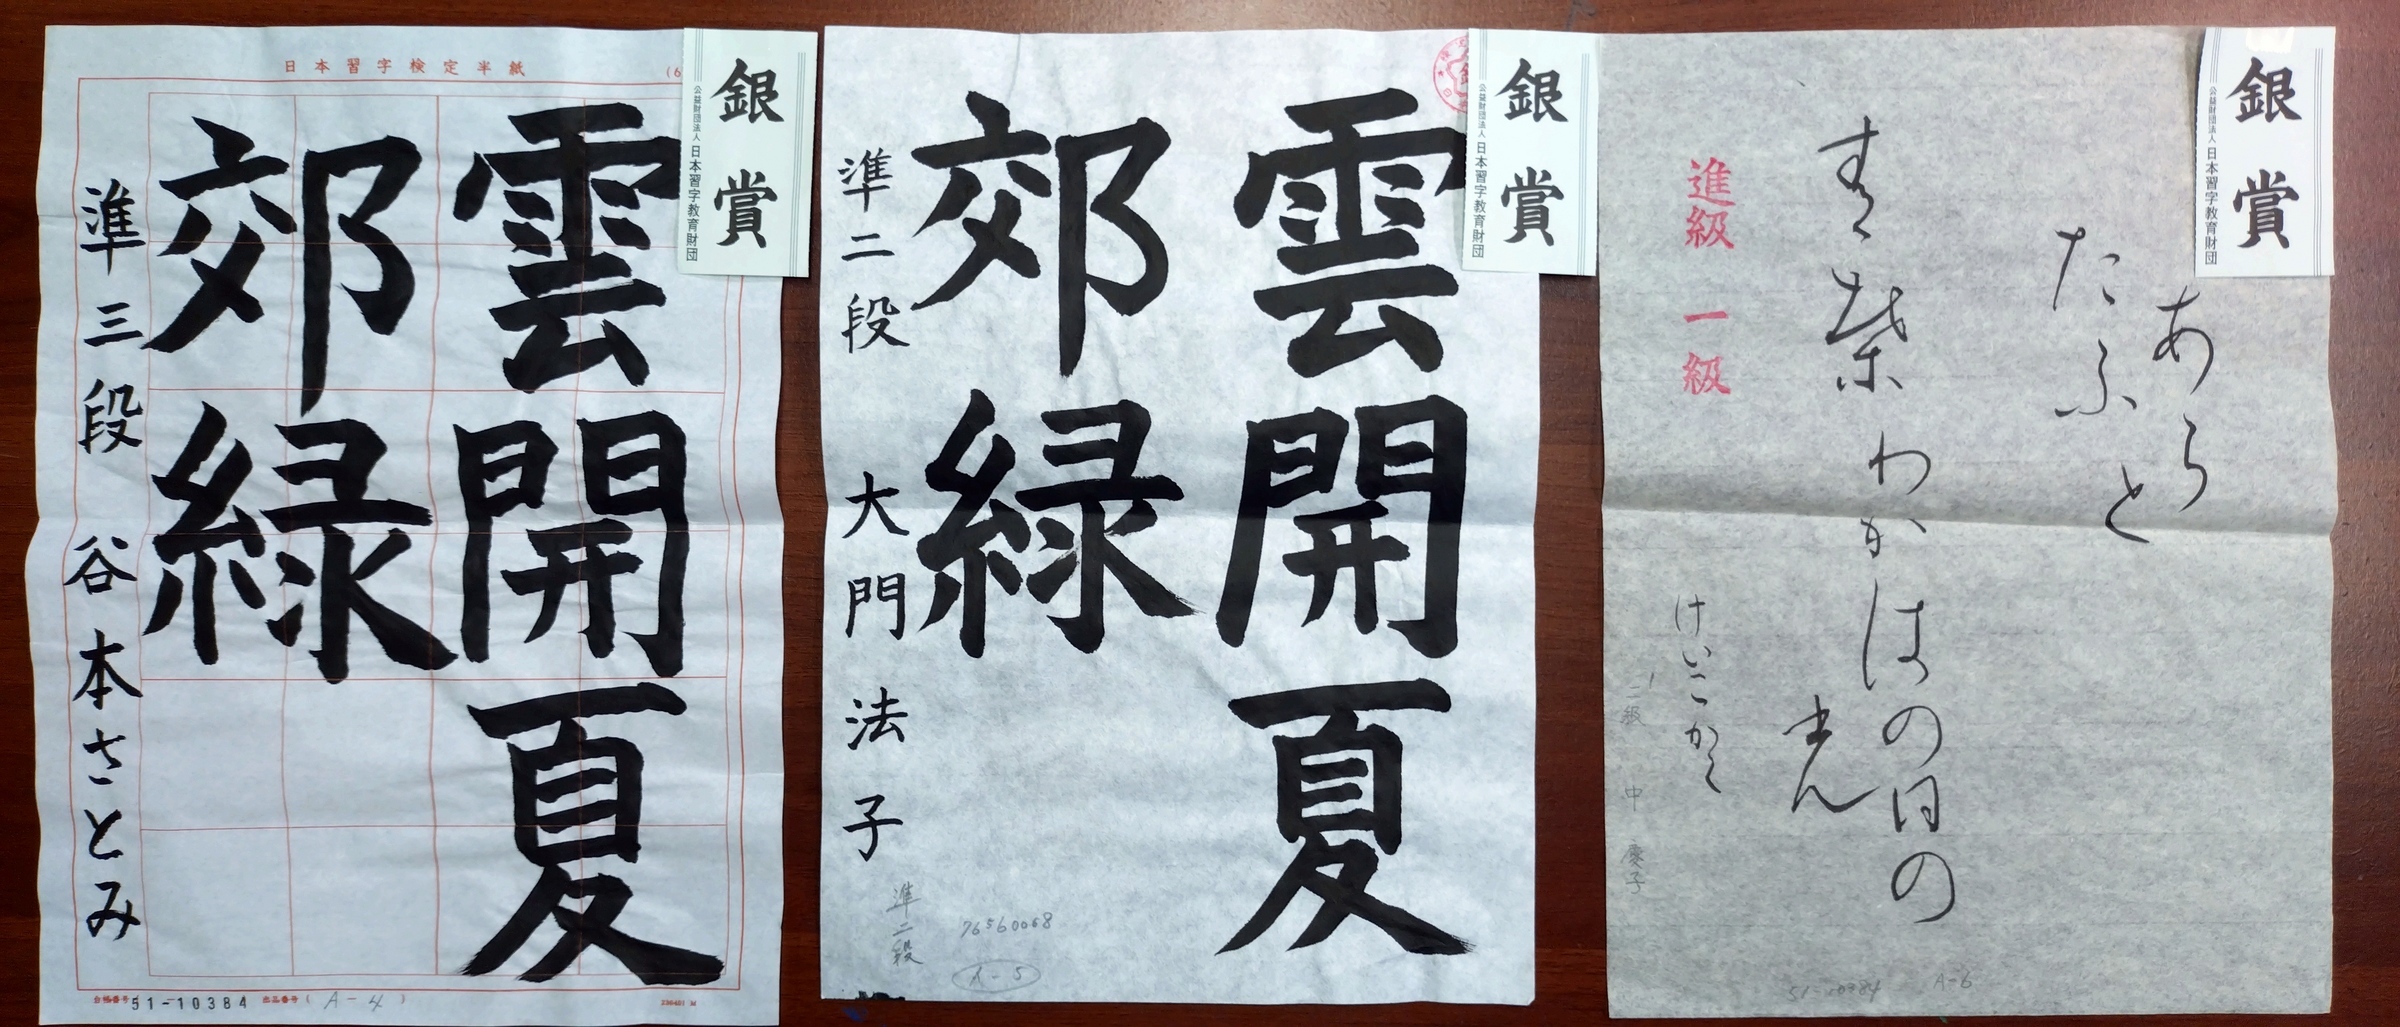 日本習字検定半紙
銀賞
公益財団法人日本習字教育財団
雲開夏
郊緑
準三段 谷本さとみ
51-10384
A-4
銀賞
公益財団法人日本習字教育財団
雲開夏
郊緑
準二段 大門法子
準二段
76560068
A-5
銀賞
公益財団法人日本習字教育財団
あらと
たふと
わかはの日の
けいこかく
進級 一級
二級 中 慶子
51-10384
A-6